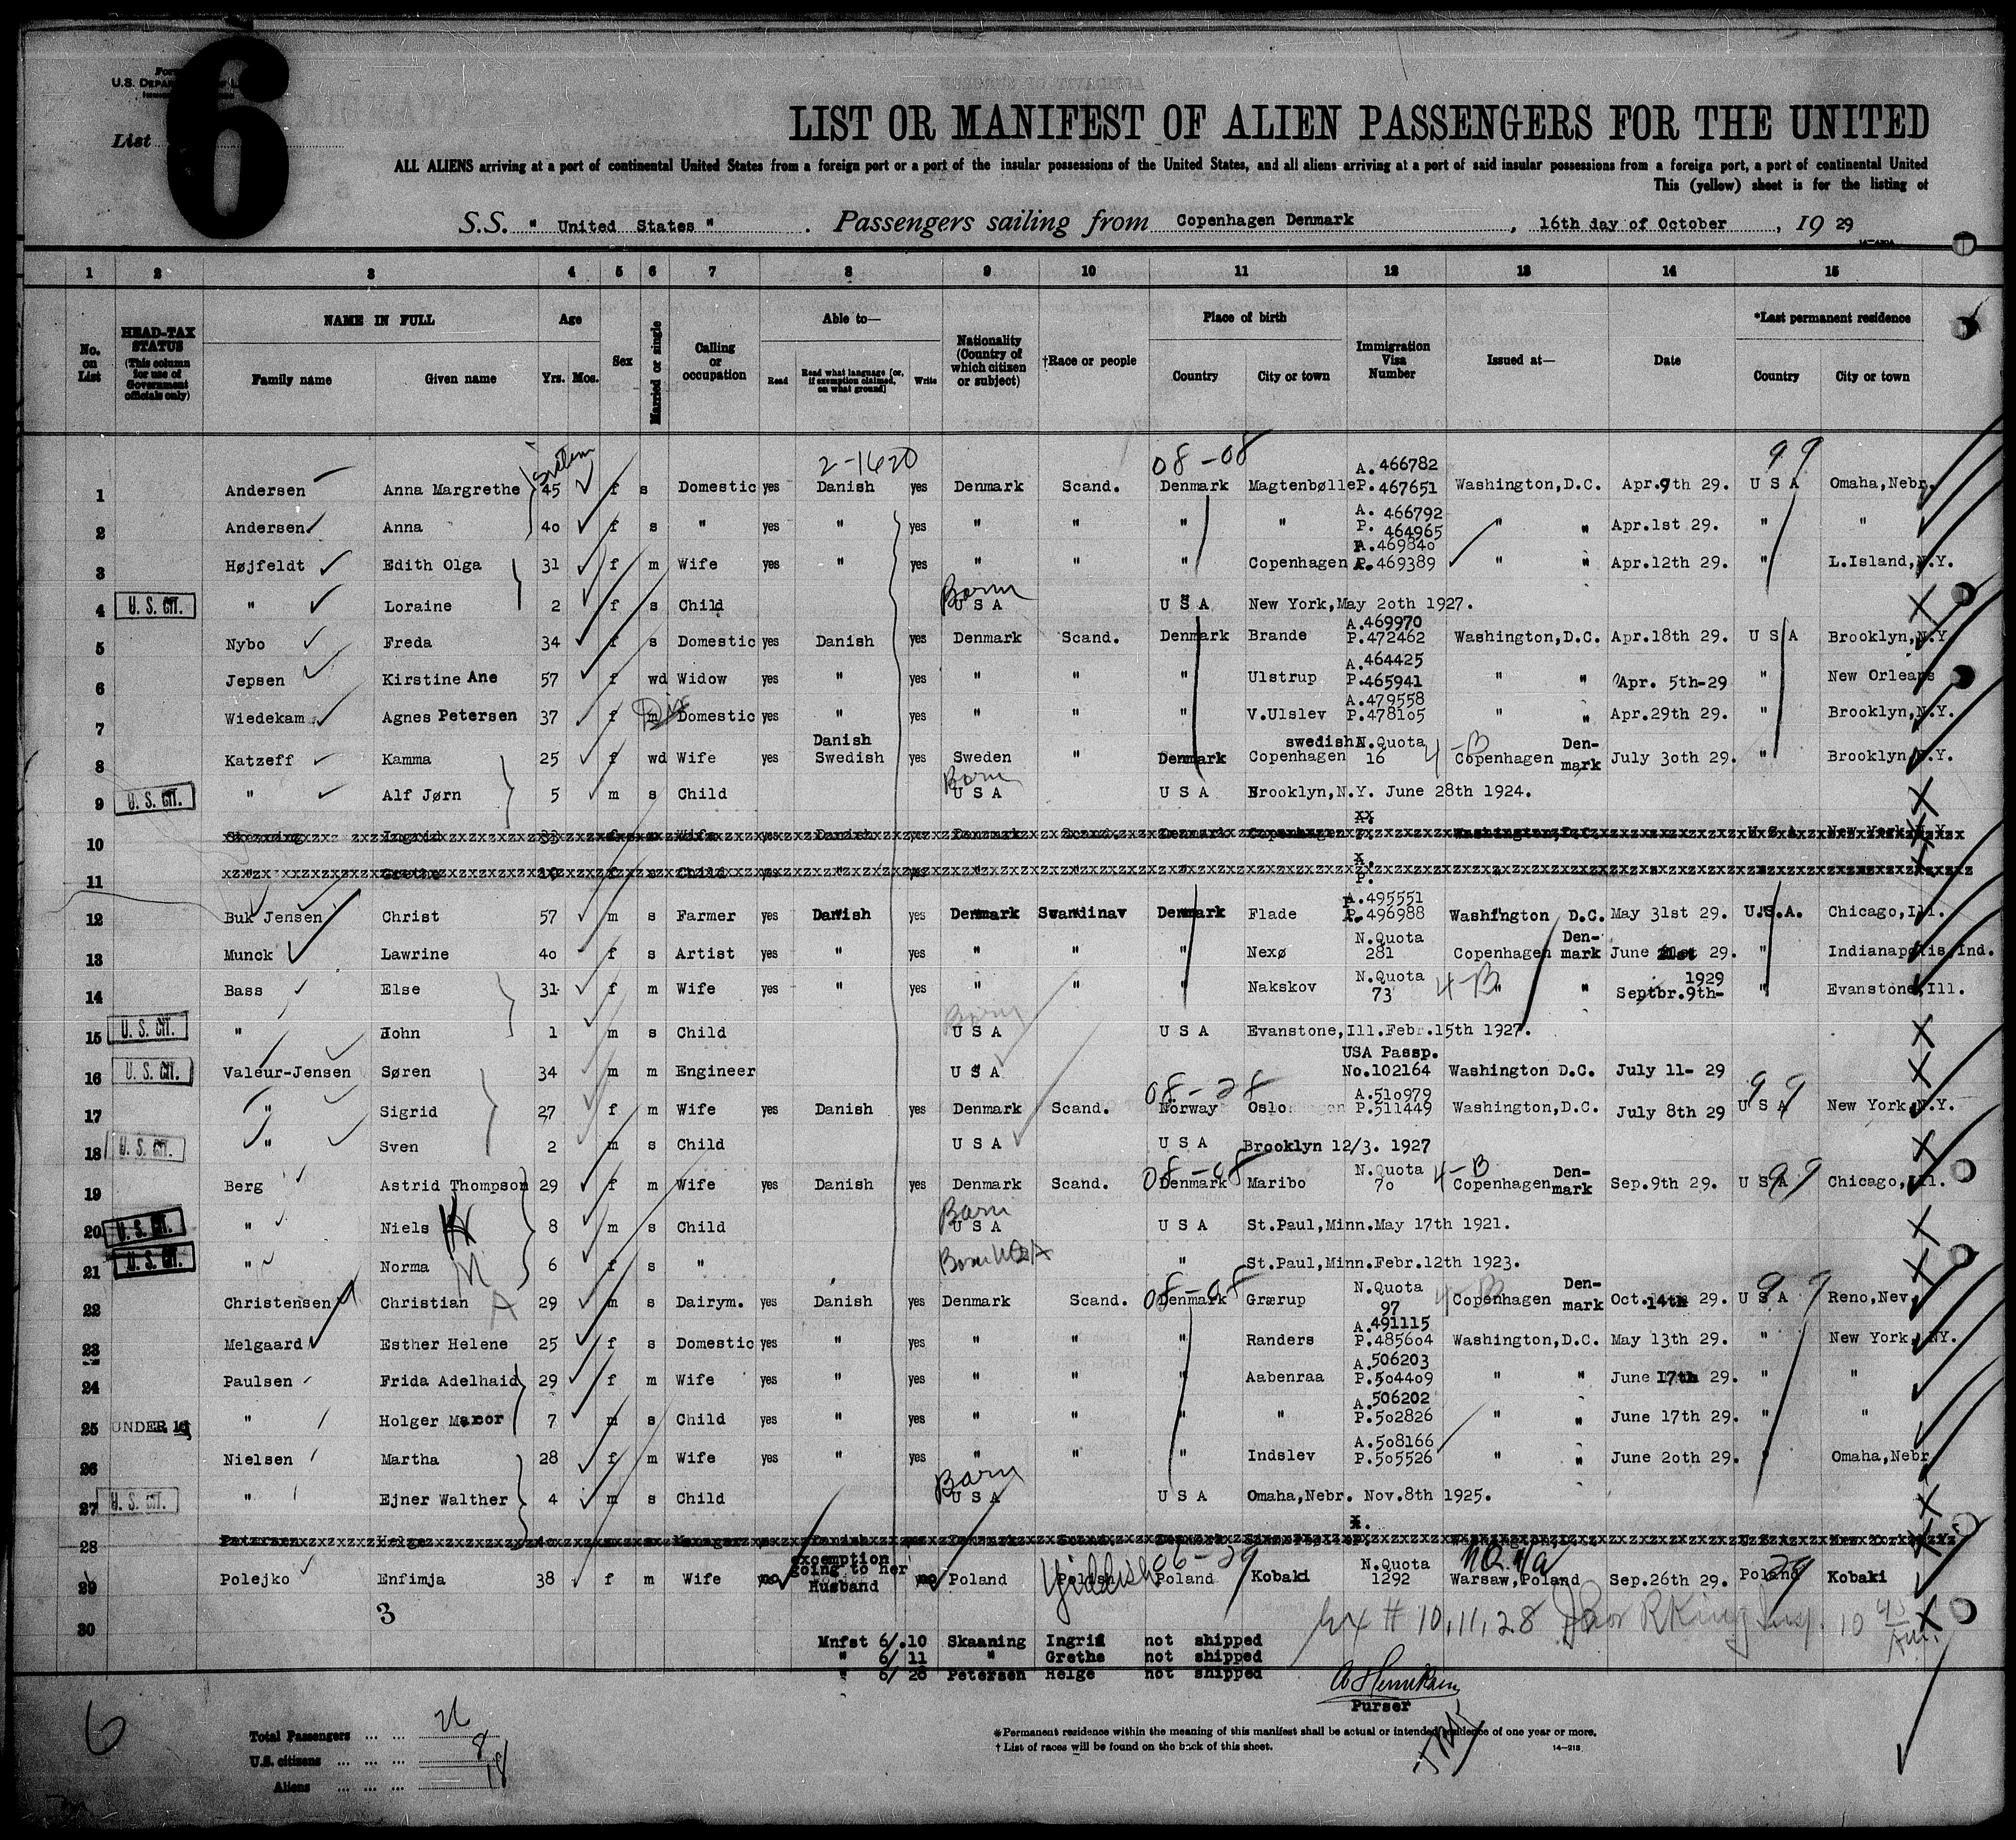 6
List
LIST OR MANIFEST OF ALIEN PASSENGERS FOR THE UNITED
ALL ALIENS arriving at a port of continental United States from a foreign port or a port of the insular possessions of the United States, and all aliens arriving at a port of said insular possessions from a foreign port, a port of continental United
This (yellow) sheet is for the listing of
S.S. " United States " . Passengers sailing from Copenhagen Denmark , 16th day of October , 19 29
1 2 3 4 5 6 7 8 9 10 11 12 13 14 15
No. on List HEAD-TAX STATUS (This column for use of Government officials only) NAME IN FULL Family name Given name Age Yrs. Mos. Sex Married or single Calling or occupation Able to— Read Read what language [or, if exemption claimed, on what ground] Write Nationality (Country of which citizen or subject) †Race or people Place of birth Country City or town Immigration Visa Number Issued at— Date *Last permanent residence Country City or town
2-1620 08-08 99
1 Andersen Anna Margrethe 45 f s Domestic yes Danish yes Denmark Scand. Denmark Magtenbølle A. 466782 P. 467651 Washington,D.C. Apr.9th 29. U S A Omaha,Nebr.
2 Andersen Anna 40 f s " yes " yes " " " " A. 466792 P. 464965 " " Apr.1st 29. " "
3 Højfeldt Edith Olga 31 f m Wife yes " yes " " " Copenhagen A.469840 P.469389 " " Apr.12th 29. " L.Island,N.Y.
4 U. S. CIT. " Loraine 2 f s Child Born U S A U S A New York,May 20th 1927.
5 Nybo Freda 34 f s Domestic yes Danish yes Denmark Scand. Denmark Brande A.469970 P.472462 Washington,D.C. Apr.18th 29. U S A Brooklyn,N.Y
6 Jepsen Kirstine Ane 57 f wd Widow yes " yes " " " Ulstrup A.464425 P.465941 " " Apr. 5th-29 " New Orleans
7 Wiedekam Agnes Petersen 37 f m Div Domestic yes " yes " " " V.Ulslev A.479558 P.478105 " " Apr.29th 29. " Brooklyn,N.Y.
8 Katzeff Kamma 25 f wd Wife yes Danish Swedish yes Sweden " Denmark swedish Copenhagen N.Quota 16 4-B Copenhagen Denmark July 30th 29. " Brooklyn N.Y.
9 U. S. CIT. " Alf Jørn 5 m s Child Born U S A U S A Brooklyn,N.Y. June 28th 1924.
10 Ingrid 33 Wife Danish Denmark Scand. Denmark Copenhagen Washington,D.C. U S A New York
11 " Grethe Child
12 Buk Jensen Christ 57 m s Farmer yes Danish yes Denmark Denmark Flade A.495551 P.496988 Washington D.C. May 31st 29. U.S.A. Chicago,Ill.
13 Munck Lawrine 40 f s Artist yes " yes " " " Nexø N.Quota 281 Copenhagen Denmark June 29. " Indianapolis,Ind.
14 Bass Else 31 f m Wife yes " yes " " " Nakskov N.Quota 73 4-B " " Septbr.9th- 1929 " Evanstone,Ill.
15 U. S. CIT. " John 1 m s Child Born U S A U S A Evanstone,Ill.Febr.15th 1927.
16 U. S. CIT. Valeur-Jensen Søren 34 m m Engineer U S A USA Passp. No.102164 Washington D.C. July 11- 29
08-28 99
17 " Sigrid 27 f m Wife yes Danish yes Denmark Scand. Norway Oslo A.510979 P.511449 Washington,D.C. July 8th 29 U S A New York,N.Y.
18 U. S. CIT. " Sven 2 m s Child U S A U S A Brooklyn 12/3. 1927
19 Berg Astrid Thompson 29 f m Wife yes Danish yes Denmark Scand. 08-08 Denmark Maribo N.Quota 70 4-B Copenhagen Denmark Sep.9th 29. U S A 99 Chicago,Ill.
20 U. S. CIT. " Niels 8 m s Child Born U S A U S A St.Paul,Minn.May 17th 1921.
21 U. S. CIT. " Norma M 6 f s " Born USA " St.Paul,Minn.Febr.12th 1923.
22 Christensen Christian A 29 m s Dairym. yes Danish yes Denmark Scand. 08-08 Denmark Grærup N.Quota 97 4-B Copenhagen Denmark Oct.14th 29. U S A 99 Reno,Nev.
23 Melgaard Esther Helene 25 f s Domestic yes " yes " " " Randers A.491115 P.485604 Washington,D.C. May 13th 29. " New York, NY.
24 Paulsen Frida Adelhaid 29 f m Wife yes " yes " " " Aabenraa A.506203 P.504409 " " June 17th 29. " "
25 UNDER 16 " Holger 7 m s Child yes " yes " " " " A.506202 P.502826 " " June 17th 29. " "
26 Nielsen Martha 28 f m Wife yes " yes " " " Indslev A.508166 P.505526 " " June 20th 29. " Omaha,Nebr
27 U. S. CIT. " Ejner Walther 4 m s Child Born U S A U S A Omaha,Nebr. Nov.8th 1925.
28 Petersen Helge Manager Danish Denmark Scand. Denmark Washington,D.C. U.S.A. New York
29 Polejko Enfimja 38 f m Wife no exemption going to her Husband no Poland Polish Yiddish 06-29 Poland Kobaki N.Quota 1292 Warsaw,Poland Sep.26th 29. Poland 29 Kobaki
30 3
# 10,11,28 King Insp. 10 45 Am.
Mnfst 6/.10 Skaaning Ingrid not shipped
" 6/ 11 " Grethe not shipped
" 6/ 28 Petersen Helge not shipped
Purser
6
Total Passengers ... ... 26
U.S. citizens ... ... ... 8
Aliens ... ... ... 18
*Permanent residence within the meaning of this manifest shall be actual or intended residence of one year or more.
† List of races will be found on the back of this sheet. 14-213